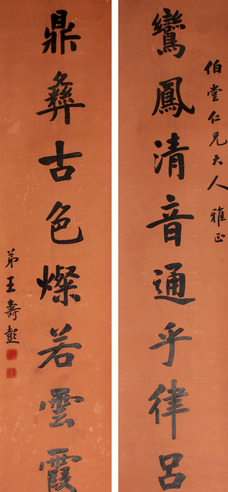 伯堂仁兄大人 雅正
鸞鳳清音通乎律呂
鼎彝古色燦若雲霞
弟王壽彭